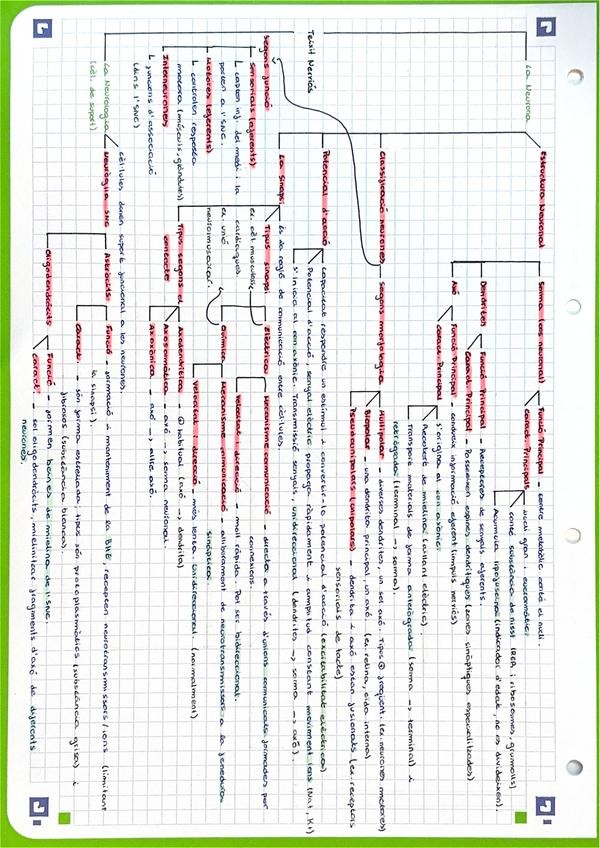 Teixit Nerviós
La Neurona
Estructura Neuronal
Soma (cos neuronal)
Funció Principal - centre metabòlic conté el nucli.
Caract. Principals
nucli gran i eucromàtic
conté substància de nissl (RER i ribosomes, grumolls)
Acumula lipofuscina (indicador d'edat, no es divideixen).
Dendrites
Funció Principal - Receptores de senyals aferents.
Caract. Principal - Posseeixen espines dendrítiques (zones sinàptiques especialitzades)
Axó
Funció Principal - condueix informació eferent (impuls nerviós)
Caract. Principal
s'origina al con axònic
Recobert de mielina (aïllant elèctric).
Transport materials de forma anterògrada (soma → terminal) i
retrògrada (terminal → soma).
Classificació neurones
Segons morfologia
Multipolar - diverses dendrites, un sol axó. Tipus ⊕ freqüent. (ex. neurones motores)
Bipolar - una dendrita principal, un axó. (ex. retina, oïda interna)
Pseudounipolars (unipolars) - dendrita i axó estan fusionats (ex. receptors
sensorials de tacte)
Segons funció
Sensorials (aferents)
↳ capten inf. del medi i la
porten a l'SNC.
Motores (eferents)
↳ controlen resposta
motora (músculs, glàndules)
Interneurones
↳ funcions d'associació
(dins l'SNC)
Potencial d'acció
Capacitat respondre un estímul i convertir-lo potencial d'acció (excitabilitat elèctrica)
Potencial d'acció senyal elèctric propaga ràpidament i amplitud constant moviment ions (Na+, K+)
S'inicia al con axònic. Transmissió senyals, unidireccional (dendrites → soma → axó).
La Sinapsi
és la regió de comunicació entre cèl·lules.
Tipus sinapsi
ex. cèl. musculars
cardíaques
ex. unió
neuromuscular.
Elèctrica
Mecanisme comunicació - directa a través d'unions comunicants formades per
connexines.
Velocitat i direcció - molt ràpida. Pot ser bidireccional.
Química
Mecanisme comunicació - alliberament de neurotransmissors a la fenedura
sinàptica.
Velocitat i direcció - més lenta. Unidireccional (normalment)
Tipus segons el
contacte
Axodendrítica - ⊕ habitual (axó → dendrita)
Axosomàtica - axó → soma neuronal.
Axoaxònica - axó → altre axó.
La Neuroglia
(cèl. de suport)
cèl·lules donen suport funcional a les neurones.
Neuròglia SNC
Astròcits
Funció - formació i manteniment de la BHE, recapten neurotransmissors/ions (limitant
la sinapsi).
Caract. - són forma estrellada, tipus són protoplasmàtics (substància grisa) i
fibrosos (substància blanca).
Oligodendròcits
Funció - formen beines de mielina de l'SNC.
Caract. - sol oligodendròcit, mielinitzar fragments d'axó de diferents
neurones.